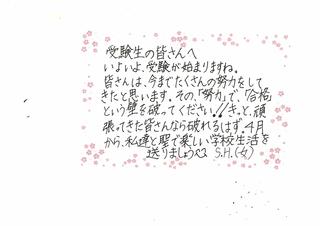 受験生の皆さんへ
いよいよ、受験が始まりますね。
皆さんは、今までたくさんの努力をして
きたと思います。その、「努力」で、「合格」
という壁を破ってください!!きっと、頑
張ってきた皆さんなら破れるはず。4月
から、私達と聖で楽しい学校生活を
送りましょう S.H.(女)